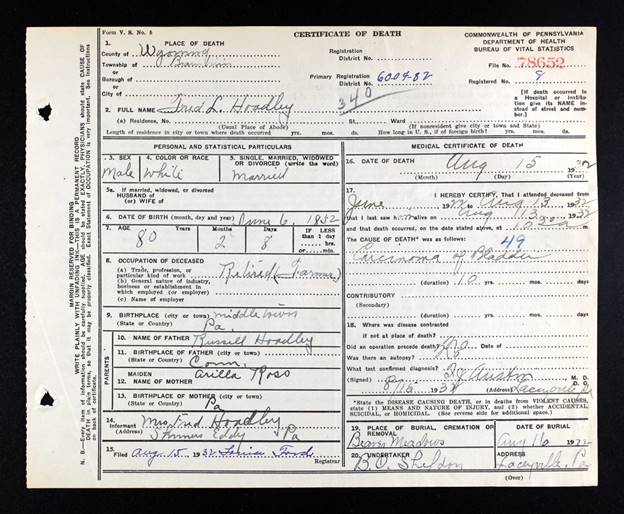 Form V. S. No. 5
CERTIFICATE OF DEATH
COMMONWEALTH OF PENNSYLVANIA
DEPARTMENT OF HEALTH
BUREAU OF VITAL STATISTICS
1. PLACE OF DEATH
County of Wyoming
Township of
or
Borough of
or
City of
Registration
District No.
Primary Registration
District No. 6009-82
File No. 78652
Registered No. 8
[If death occurred in a Hospital or institution give its NAME instead of street and number.]
340
2. FULL NAME Fred L. Hoadley
(a) Residence, No. St. Ward
(Usual Place of Abode) (If nonresident give city or town and State)
Length of residence in city or town where death occurred yrs. mos. ds. How long in U. S., if of foreign birth? yrs. mos. ds.
PERSONAL AND STATISTICAL PARTICULARS
3. SEX Male
4. COLOR OR RACE White
5. SINGLE, MARRIED, WIDOWED OR DIVORCED (write the word) Married
5a. If married, widowed, or divorced
HUSBAND of
(or) WIFE of
6. DATE OF BIRTH (month, day and year) June 6, 1852
7. AGE Years 80 Months 2 Days 8 If LESS than 1 day hrs. or min.
8. OCCUPATION OF DECEASED
(a) Trade, profession, or particular kind of work Retired (Farmer)
(b) General nature of industry, business or establishment in which employed (or employer)
(c) Name of employer
9. BIRTHPLACE (city or town) Middletown
(State or Country) Pa.
PARENTS
10. NAME OF FATHER Russell Hoadley
11. BIRTHPLACE OF FATHER (city or town)
(State or Country) Conn.
12. MAIDEN NAME OF MOTHER Arilla Ross
13. BIRTHPLACE OF MOTHER (city or town)
(State or Country) Pa
14. Informant Mrs. Fred Hoadley
(Address) Skinners Eddy Pa
15. Filed Aug 15, 1932 Registrar
MEDICAL CERTIFICATE OF DEATH
16. DATE OF DEATH Aug 15 1932
(Month) (Day) (Year)
17. I HEREBY CERTIFY, That I attended deceased from
June to Aug 13, 1932
that I last saw him alive on Aug 13, 1932
and that death occurred, on the date stated above, at
The CAUSE OF DEATH* was as follows: 49
Carcinoma of Bladder
(duration) 10 yrs. mos. ds.
CONTRIBUTORY
(Secondary)
(duration) yrs. mos. ds.
18. Where was disease contracted
if not at place of death?
Did an operation precede death? No Date of
Was there an autopsy? No
What test confirmed diagnosis?
(Signed) Austin M. D.
8/16, 1932 (Address) Laceyville Pa
*State the DISEASE CAUSING DEATH, or in deaths from VIOLENT CAUSES, state (1) MEANS AND NATURE OF INJURY, and (2) whether ACCIDENTAL, SUICIDAL, or HOMICIDAL. (See reverse side for additional space.)
19. PLACE OF BURIAL, CREMATION OR REMOVAL
DATE OF BURIAL Aug 16 1932
20. UNDERTAKER B. O. Sheldon
ADDRESS Laceyville, Pa
(Over)
MARGIN RESERVED FOR BINDING
WRITE PLAINLY WITH UNFADING INK—THIS IS A PERMANENT RECORD